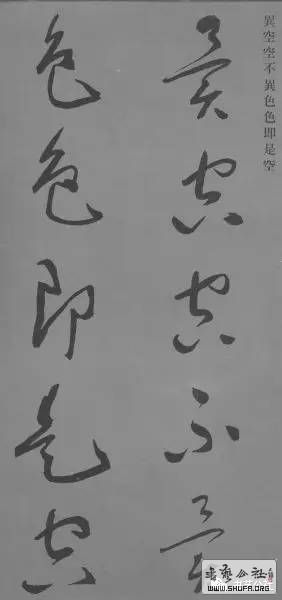 異空空不異色色即是空
異空空不異
色色即是空
書艺公社
www.SHUFA.ORG